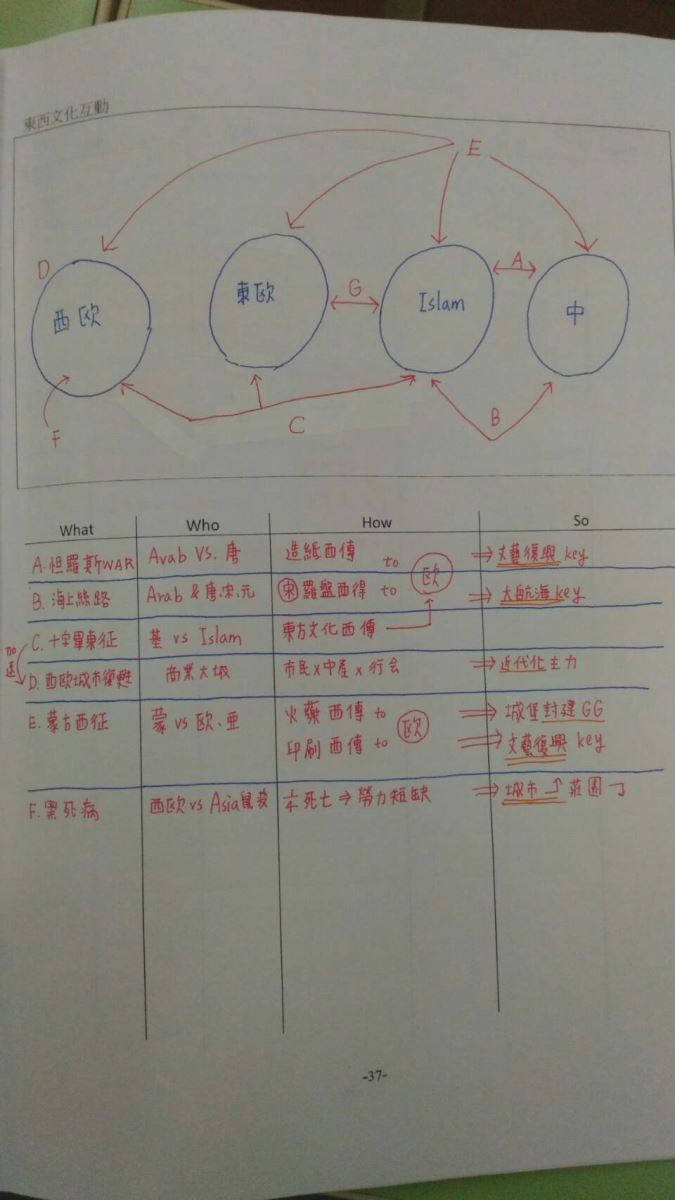 東西文化互動
E
D
A
西欧
東欧
G
Islam
中
F
C
B
What Who How So
A. 怛羅斯WAR Arab VS. 唐 造紙西傳 to 欧 ⇒文藝復興 key
B. 海上絲路 Arab & 唐.宋.元 宋羅盤西得 to ⇒大航海key
C. 十字軍東征 基 vs Islam 東方文化西傳
D. 西欧城市復甦 商業大城 市民x中產x行会 ⇒近代化主力
E. 蒙古西征 蒙 vs 欧.亜 火藥西傳 to 欧 ⇒城堡封建GG
印刷西傳 to ⇒文藝復興 key
F. 黑死病 西欧 vs Asia鼠疫 死亡⇒勞力短缺 ⇒城市↑莊園
-37-